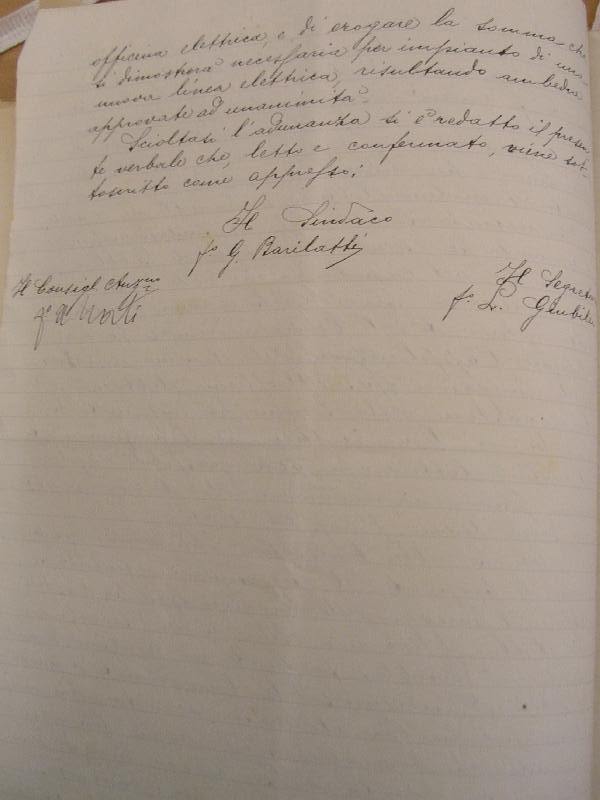 officina elettrica, e di erogare la somma che
si dimostrerà necessaria per impianto di una
nuova linea elettrica, risultando ambedue
approvate ad unanimità.
Scioltasi l'adunanza si è redatto il presen
te verbale che, letto e confermato, viene sot-
toscritto come appresso:
Il Sindaco
fo G. Barilatti
Il Consigl. Anzno
fo
Il Segretar
fo L. Giubile